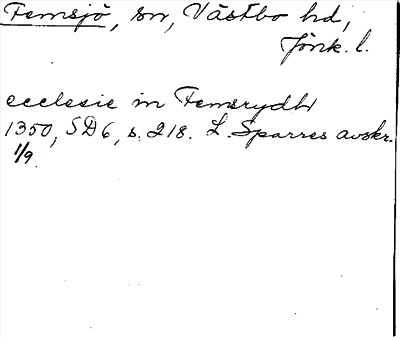 Femsjö, sn, Västbo hd,
Jönk. l.
ecclesie in Femsrydhr
1350, SD 6, s. 218. L. Sparres avskr.
1/9.